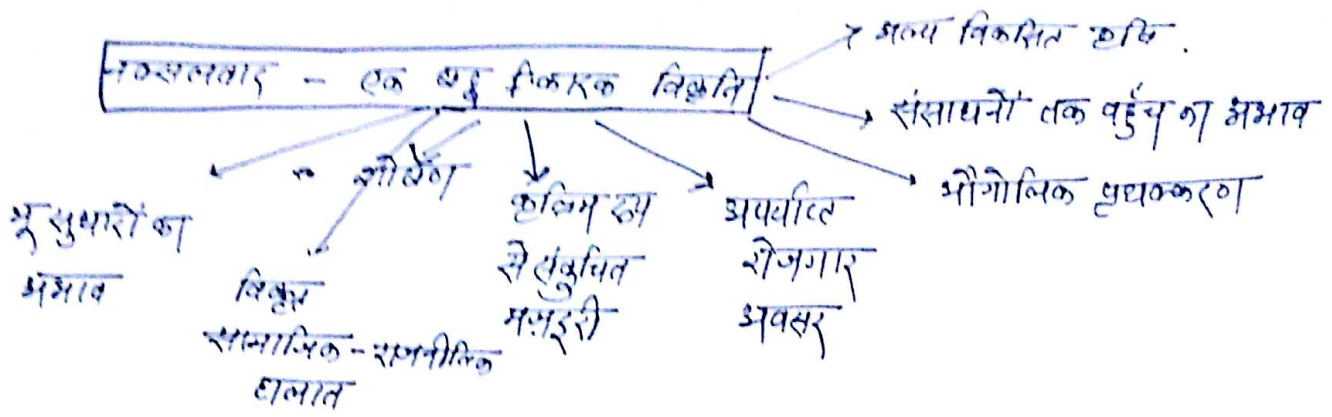 नक्सलवाद - एक बहु कारक विकृति
अल्प विकसित कृषि.
संसाधनों तक पहुँच का अभाव
भौगोलिक पृथक्करण
भू सुधारों का
अभाव
शोषण
विकृत
सामाजिक - राजनीतिक
हालात
कृत्रिम रूप
से संकुचित
मजदूरी
अपर्याप्त
रोजगार
अवसर